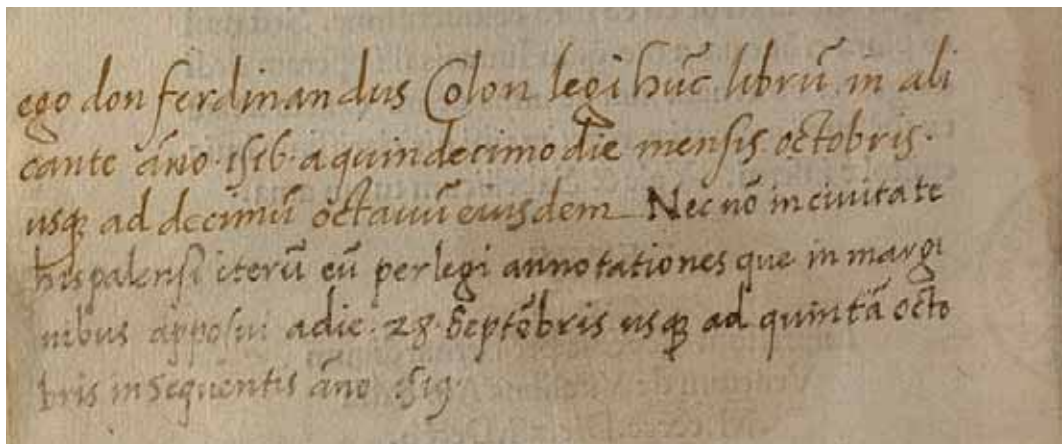 ego don ferdinandus Colon legi hūc librū in ali
cante āno · 1516 · a quindecimo die mensis octobris ·
usqꝫ ad decimū octauū eiusdem Nec nō in ciuitate
hispalensi iterū eū perlegi annotationes que in margi
nibus apposui a die · 28 · Septēbris usqꝫ ad quintā octo
bris insequentis āno 1519 ·